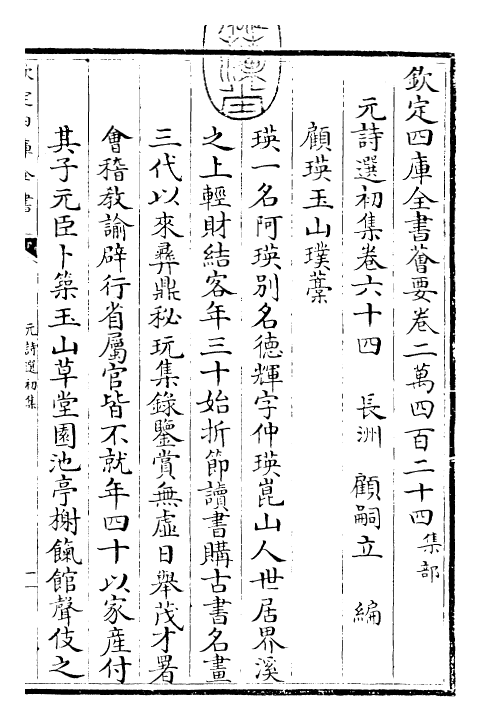 欽定四庫全書薈要卷二萬四百二十四集部
元詩選初集卷六十四　長洲　顧嗣立　編
顧瑛玉山璞藁
瑛一名阿瑛别名德輝字仲瑛崑山人世居界溪
之上輕財結客年三十始折節讀書購古書名畫
三代以來彞鼎秘玩集錄鑒賞無虛日舉茂才署
會稽敎諭辟行省屬官皆不就年四十以家産付
其子元臣卜築玉山草堂園池亭榭餼館聲伎之
欽定四庫全書
元詩選初集